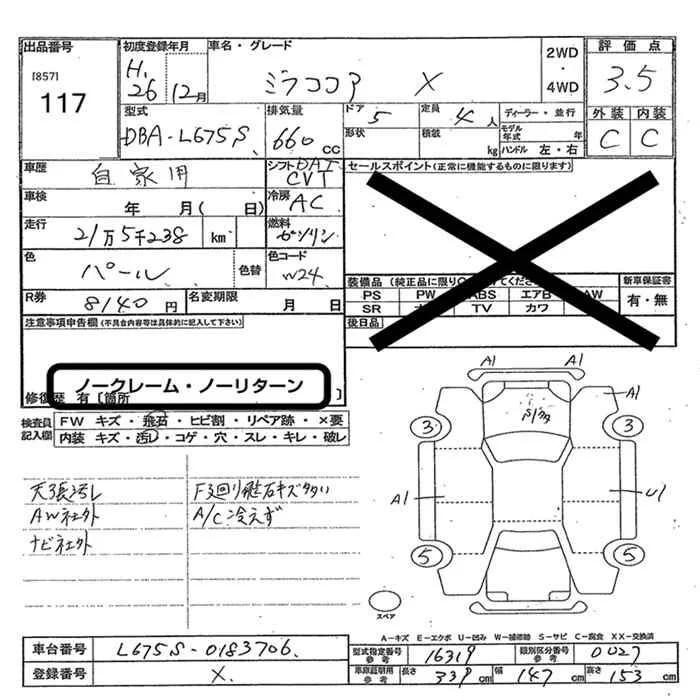 出品番号
[857]
117
初度登録年月
H.
26 12月
車名・グレード
ミラココア X
2WD
・
4WD
評価点
3.5
型式
DBA-L675S
排気量
660 cc
ドア 5
定員 4人
ディーラー・並行
形状
積載 kg
モデル年式 年
ハンドル 左・右
外装 内装
C C
車歴
自家用
シフト DAT
CVT
セールスポイント(正常に機能するものに限ります)
車検
年 月( 日)
冷房
AC
走行
21万5千238 km
燃料
ガソリン
色
パール
色替
色コード
W24
装備品 (純正品に限り
てください)
PS PW ABS エアB AW
SR TV カワ
新車保証書
有・無
後日品
R券
8140 円
名変期限
月 日
注意事項申告欄(不具合内容等は具体的に記入して下さい)
ノークレーム・ノーリターン
修復歴 有 [箇所 ]
検査員
記入欄
FW キズ・飛石・ヒビ割・リペア跡・×要
内装 キズ・汚レ・コゲ・穴・スレ・キレ・破レ
天張汚レ
AW社外
ナビ社外
F廻り飛石キズ多数
A/C冷えず
A1 A1
A1
3 3
A1
U1
5 5
スペア
A-キズ E-エクボ U-凹み W-補修跡 S-サビ C-腐食 XX-交換済
車台番号
L675S-0183706
登録番号
X
型式指定番号
参考
16319
類別区分番号
参考
0027
車庫証明用
参考
長さ 339 cm
幅 147 cm
高さ 153 cm